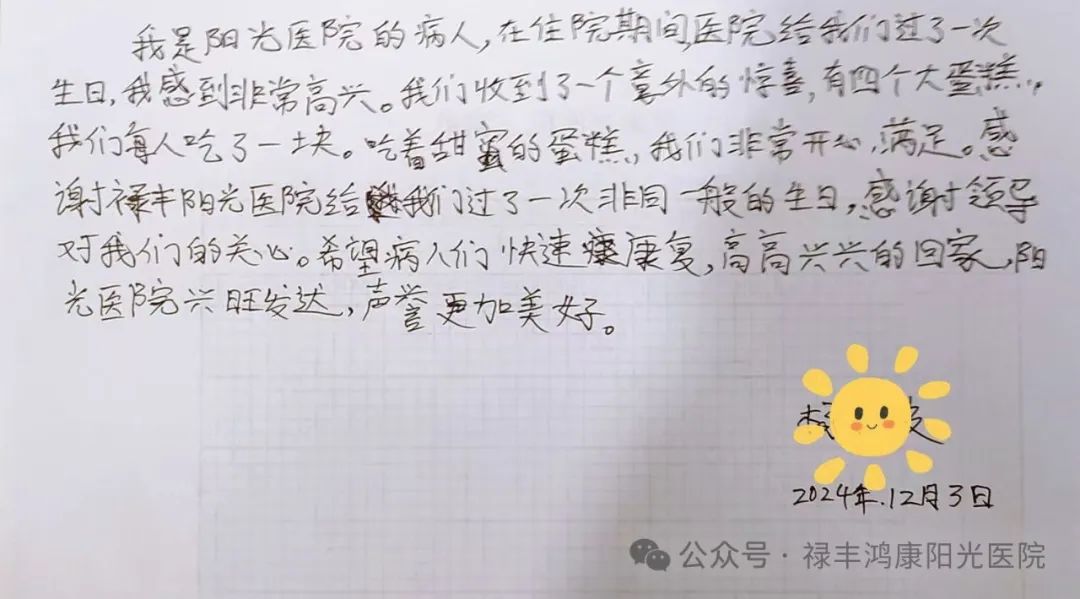 我是阳光医院的病人,在住院期间,医院给我们过了一次
生日,我感到非常高兴。我们收到了一个意外的惊喜,有四个大蛋糕,
我们每人吃了一块。吃着甜蜜的蛋糕,我们非常开心,满足。感
谢禄丰阳光医院给我们过了一次非同一般的生日,感谢领导
对我们的关心。希望病人们快速康复,高高兴兴的回家,阳
光医院兴旺发达,声誉更加美好。
2024年.12月3日
公众号·禄丰鸿康阳光医院